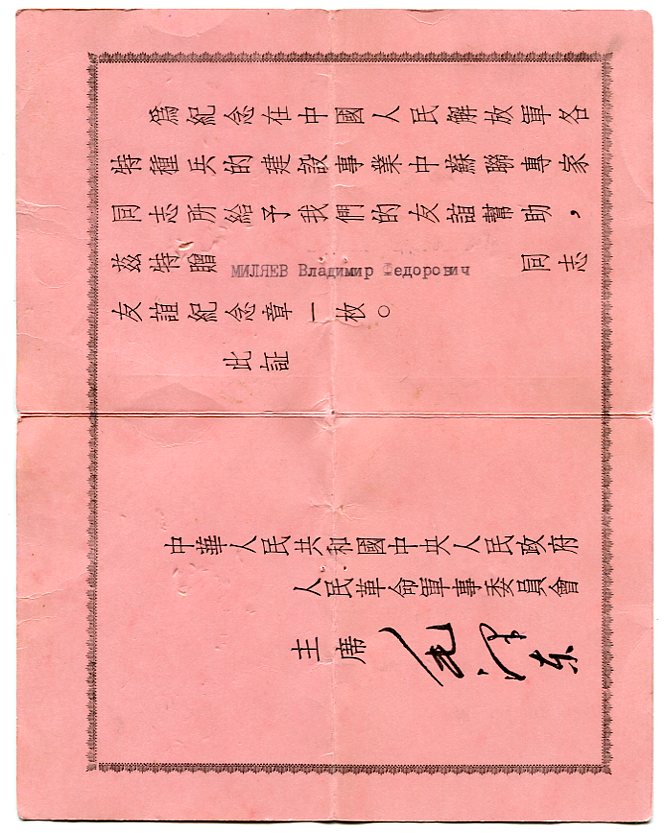 為紀念在中國人民解放軍各
特種兵的建設事業中蘇聯專家
同志所給予我們的友誼幫助，
茲特贈 МИЛЯЕВ Владимир Федорович 同志
友誼紀念章一枚。
此証
中華人民共和國中央人民政府
人民革命軍事委員會
主席 毛泽东